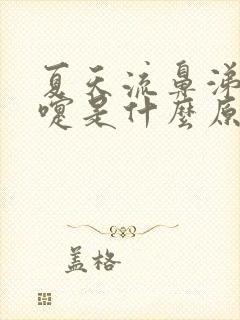 夏天流鼻涕
嚏是什麼原
盖格